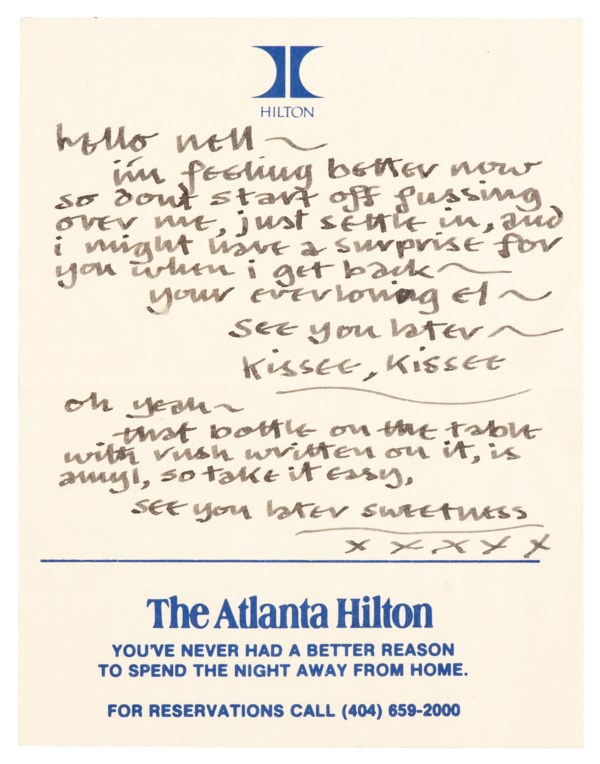 HILTON
hello nell ~
im feeling better now
so dont start off fussing
over me, just settle in, and
i might have a surprise for
you when i get back ~
your everloving el ~
see you later ~
kissee, kissee
oh yeah ~
that bottle on the table
with rush written on it, is
amyl, so take it easy,
see you later sweetness
x x x x x
The Atlanta Hilton
YOU'VE NEVER HAD A BETTER REASON
TO SPEND THE NIGHT AWAY FROM HOME.
FOR RESERVATIONS CALL (404) 659-2000